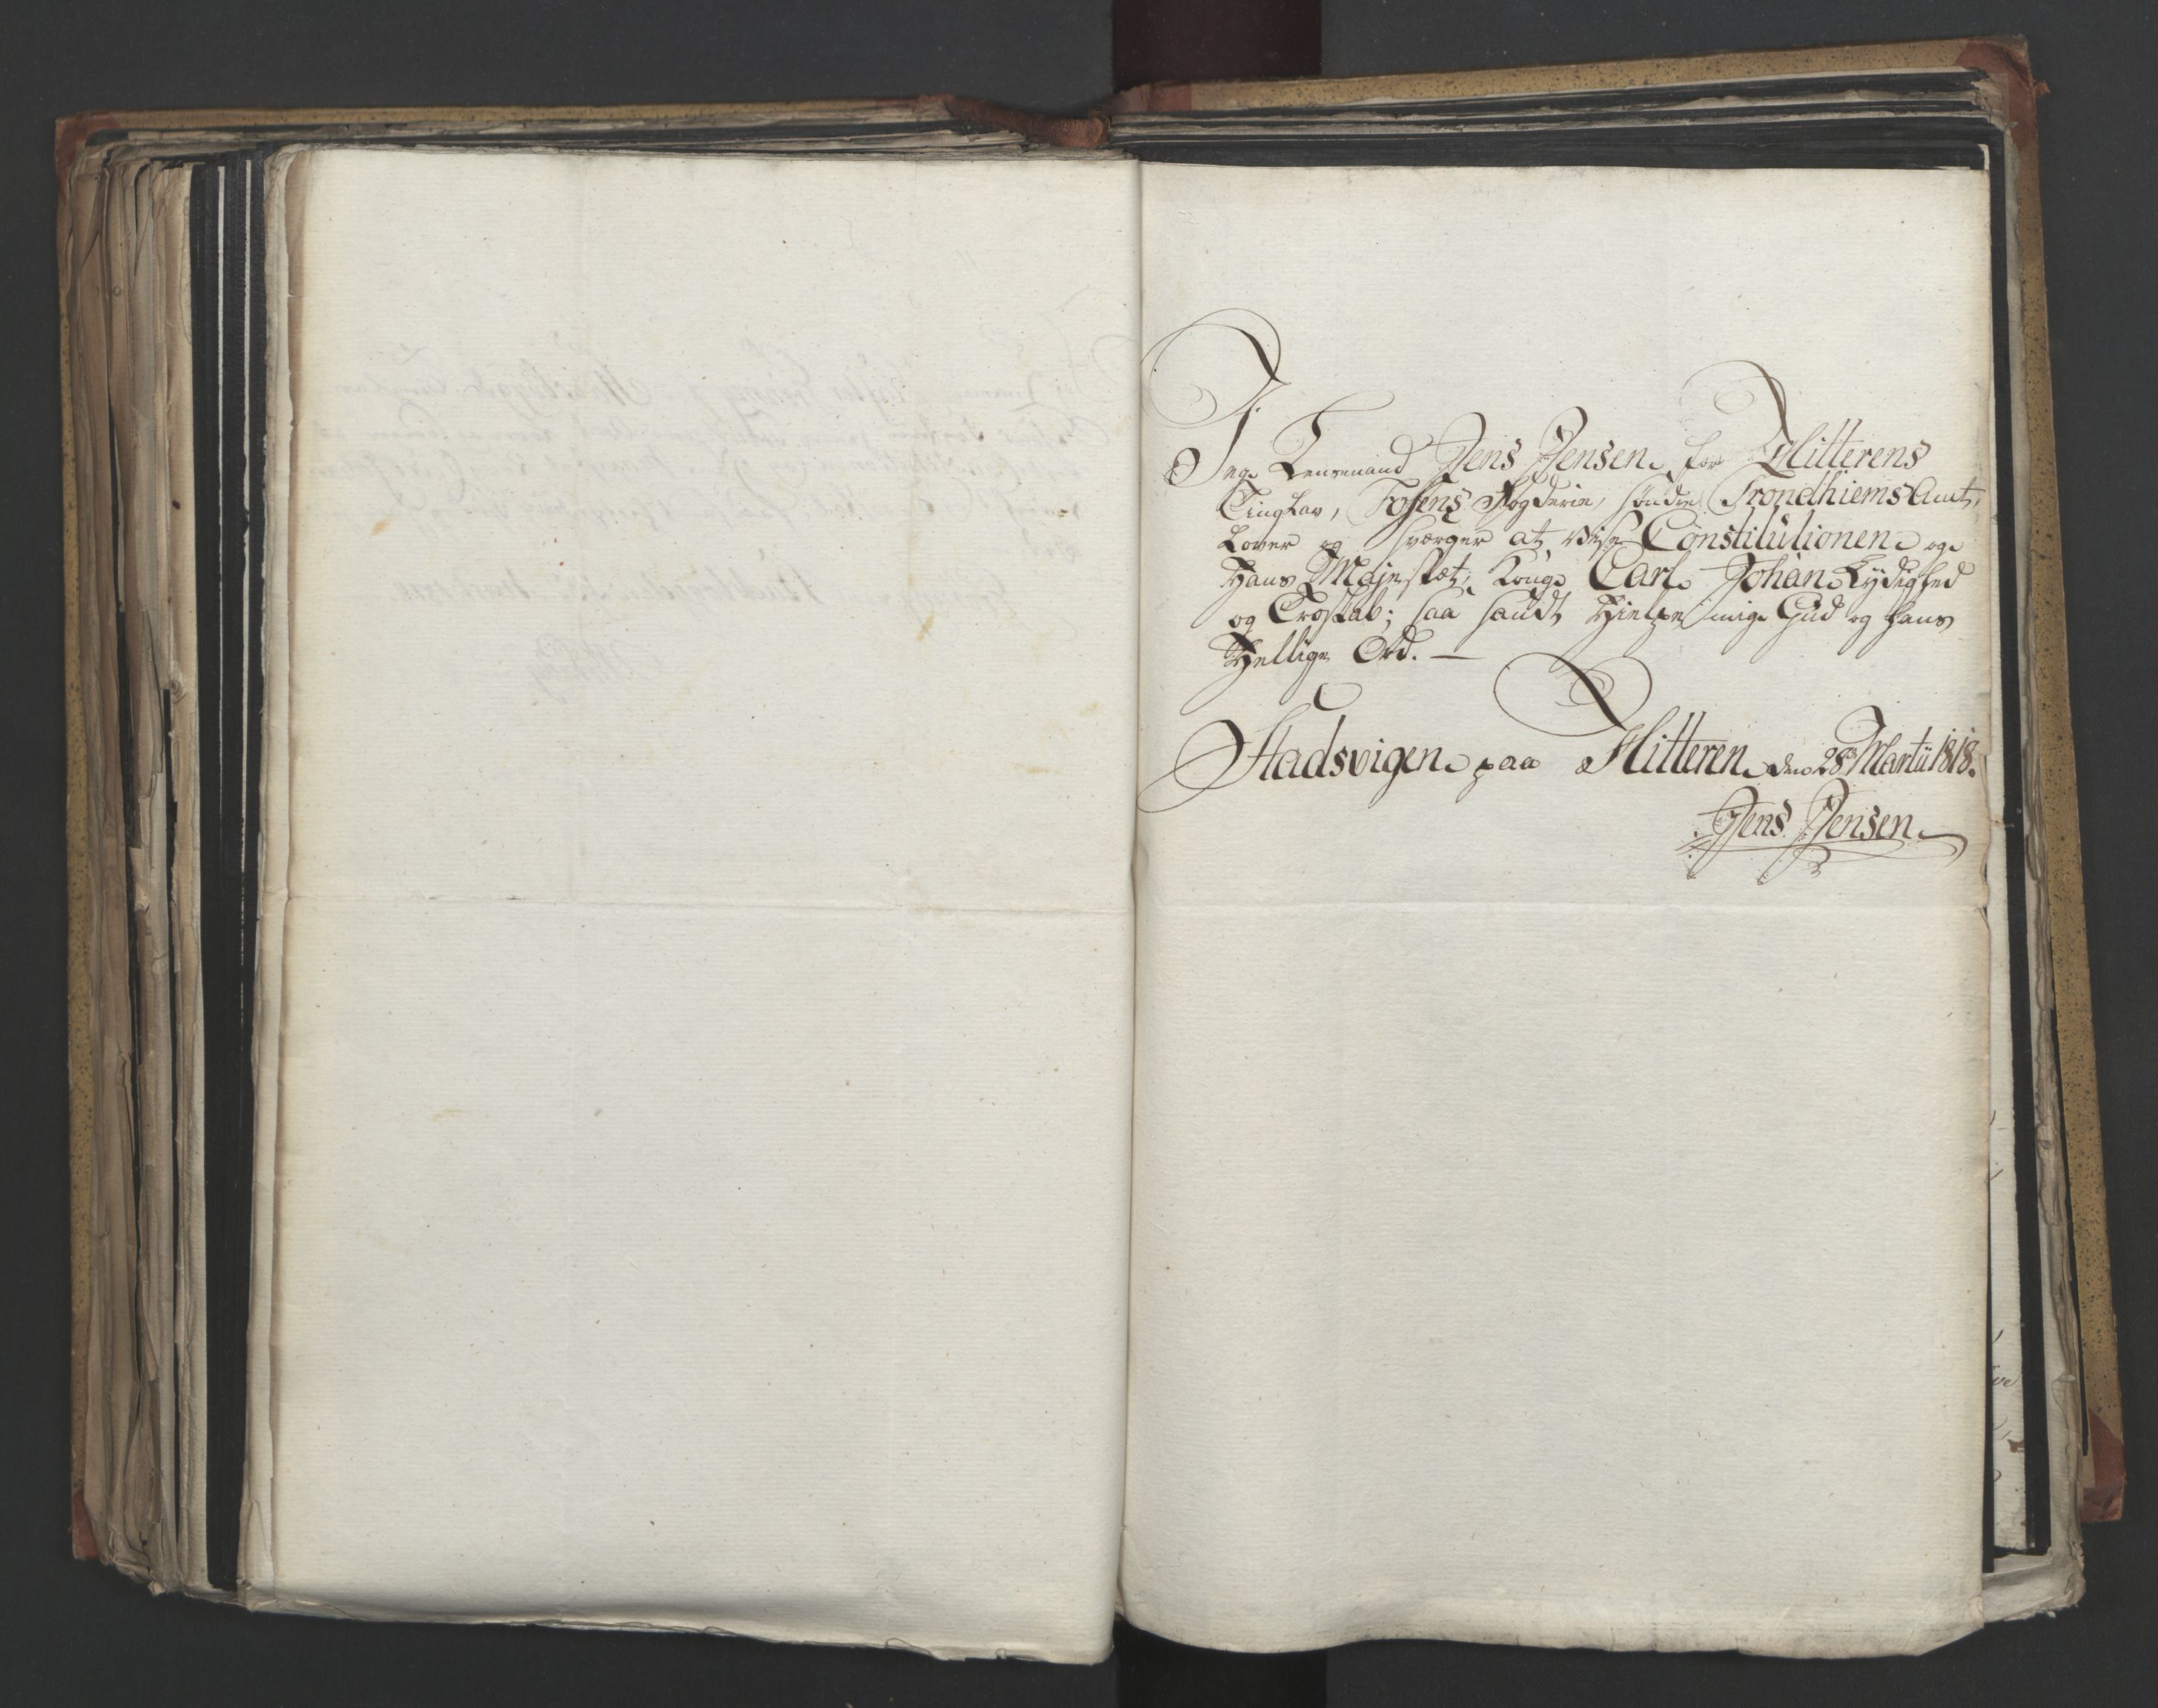 Jeg Lensmand Jens Jensen for Hitterens
Tinglav, Fosens Fogderie, söndre Trondhiems Amt,
Lover og sværger at vise Constitutionen og
Hans Majestæt, Kong Carl Johan Lydighed
og Troskab; saa sandt Hielpe mig Gud og hans
Hellige Ord. —
Stadsvigen paa Hitteren den 28de Martii 1818.
Jens Jensen